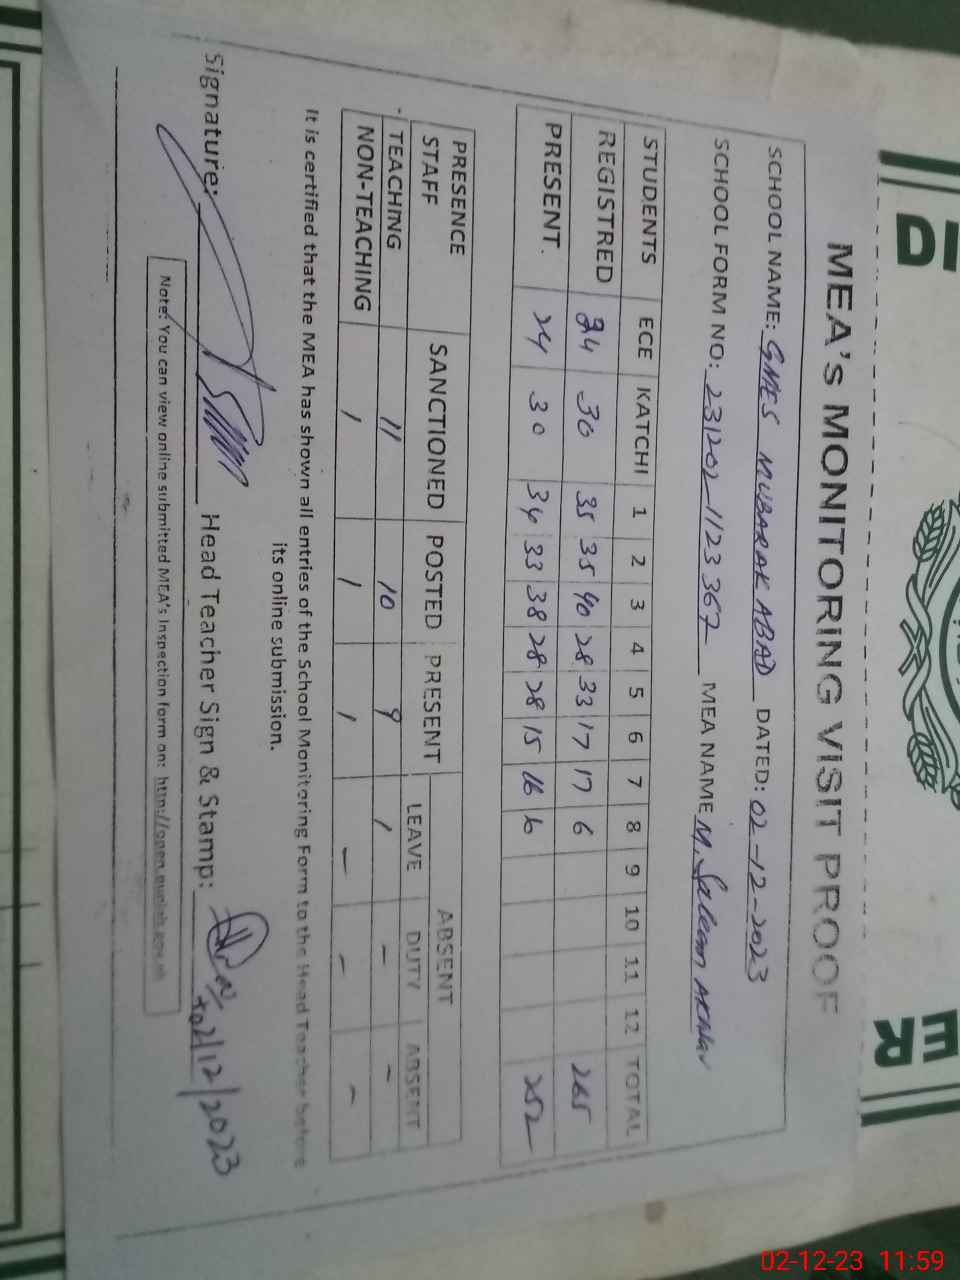 MEA's MONITORING VISIT PROOF
SCHOOL NAME: GMES MUBARAK ABAD DATED: 02-12-2023
SCHOOL FORM NO: 231202-1123367 MEA NAME M. Saleem Akhtar
STUDENTS ECE KATCHI 1 2 3 4 5 6 7 8 9 10 11 12 TOTAL
REGISTRED 24 30 35 35 40 28 33 17 17 6 265
PRESENT. 24 30 34 33 38 28 28 15 16 6 252
PRESENCE STAFF SANCTIONED POSTED PRESENT ABSENT
LEAVE DUTY ABSENT
TEACHING 11 10 9 1 - -
NON-TEACHING 1 1 1 - - -
It is certified that the MEA has shown all entries of the School Monitoring Form to the Head Teacher before
its online submission.
Signature: Head Teacher Sign & Stamp:
02/12/2023
Note: You can view online submitted MEA's Inspection form on: http://open.punjab.gov.pk
ID
ER
02-12-23 11:59